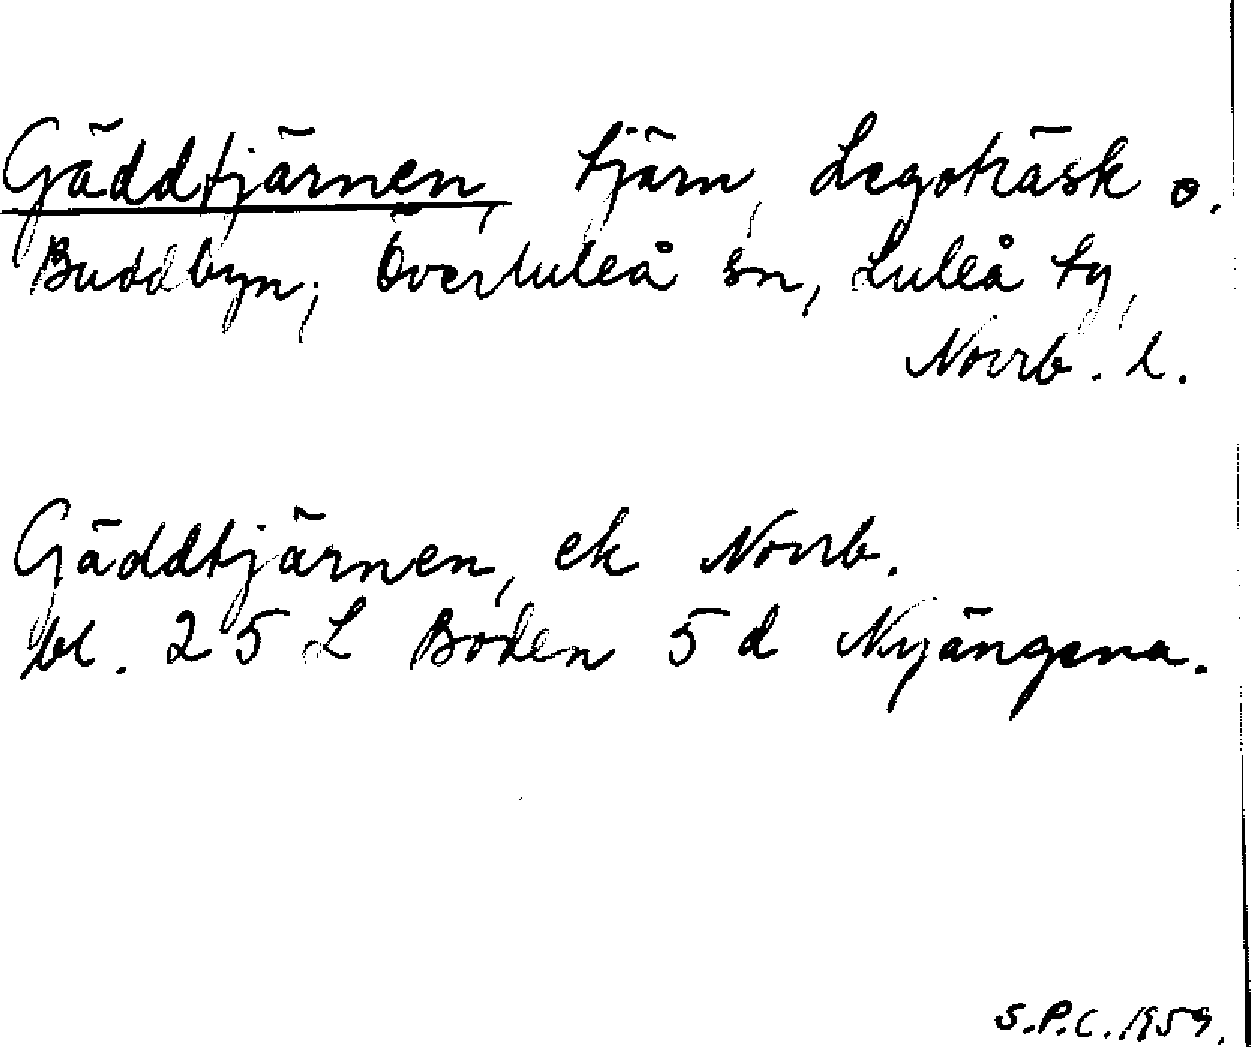 Gäddtjärnen, tjärn, Legoträsk o.
Buddbyn, Överluleå sn, Luleå tg,
Norrb. l.
Gäddtjärnen, ek Norrb.
bl. 25 L Boden 5 d Nyängena.
S.P.C. 1959.